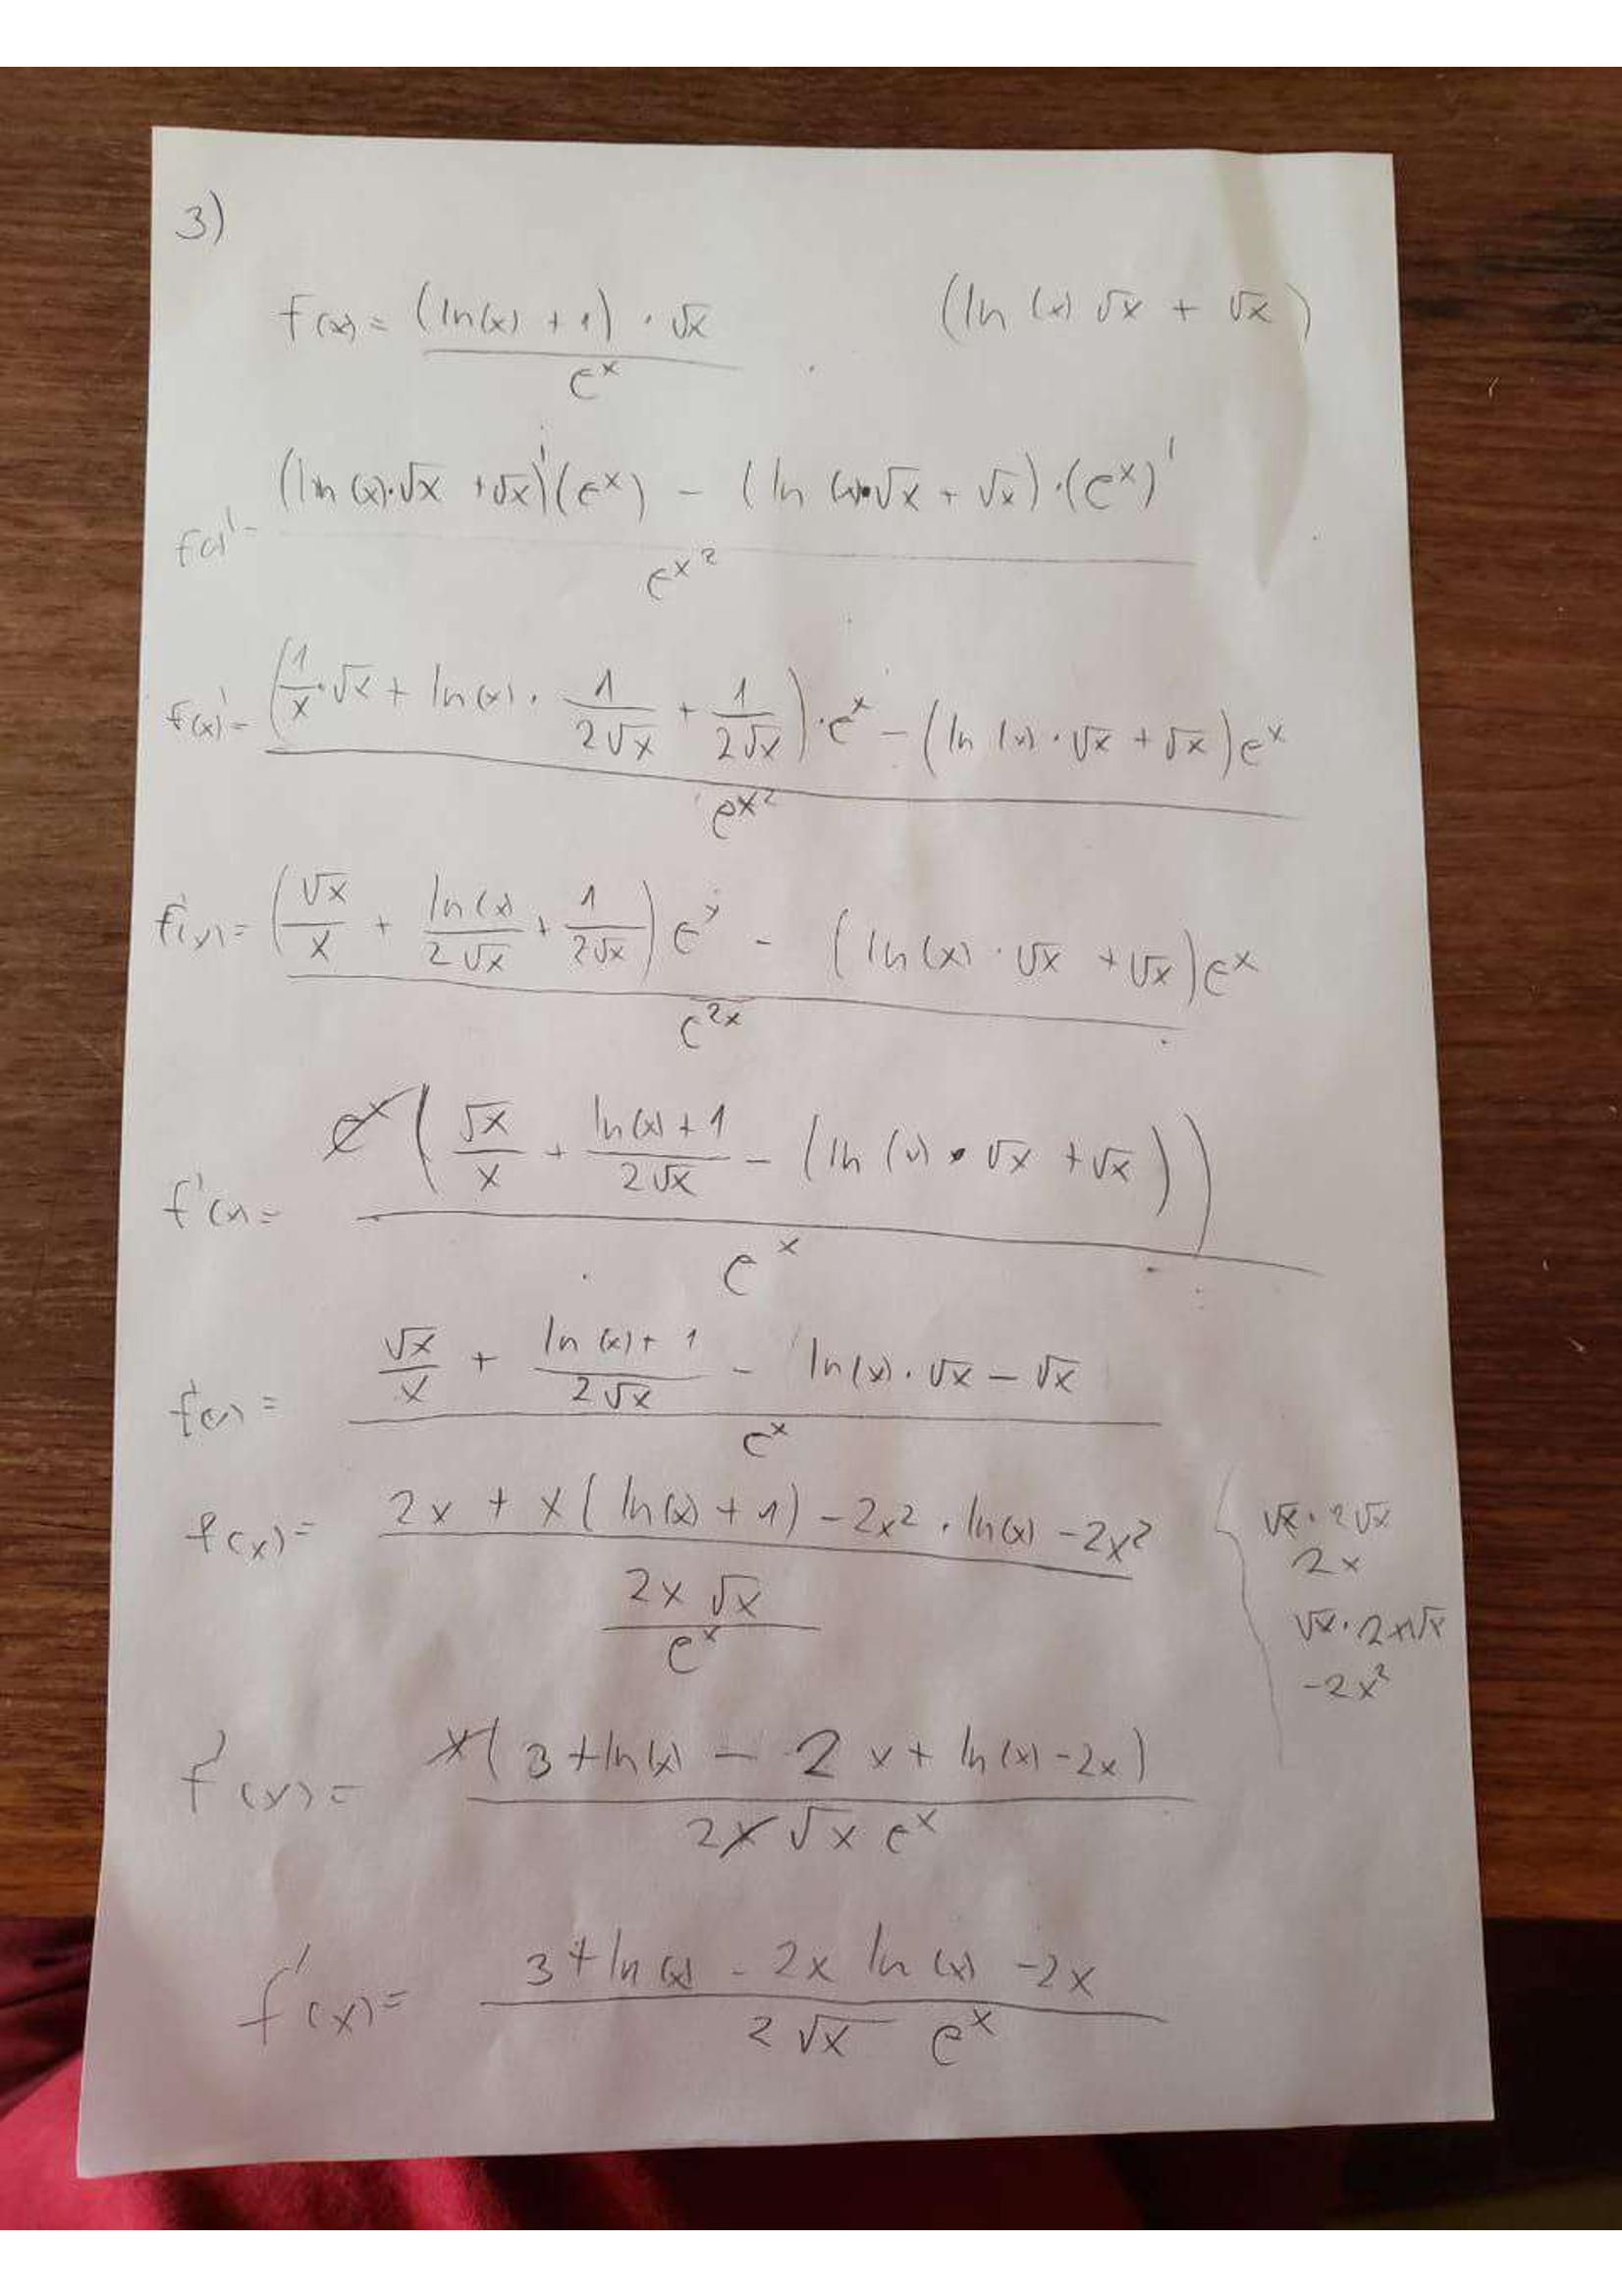 3)
f(x) = (ln(x) + 1) · √x / e^x (ln (x) √x + √x)
f(x)' = (ln (x)·√x + √x)' (e^x) − (ln (x)·√x + √x)·(e^x)' / e^x²
f(x)' = (1/x · √x + ln(x) · 1/2√x + 1/2√x)·e^x − (ln (x) · √x + √x) e^x / e^x²
f'(x) = (√x/x + ln(x)/2√x + 1/2√x) e^x − (ln(x) · √x + √x) e^x / e^2x
f'(x) = e^x (√x/x + ln(x) + 1/2√x − (ln (x) · √x + √x)) / e^x
f'(x) = √x/x + ln(x) + 1/2√x − ln(x) · √x − √x / e^x
f(x) = 2x + x(ln(x) + 1) − 2x² · ln(x) − 2x² / 2x √x / e^x
√x · 2√x
2x
√x · 2x√x
−2x²
f'(x) = x(3 + ln(x) − 2x + ln(x) − 2x) / 2x √x e^x
f'(x) = 3 + ln(x) − 2x ln(x) − 2x / 2√x e^x